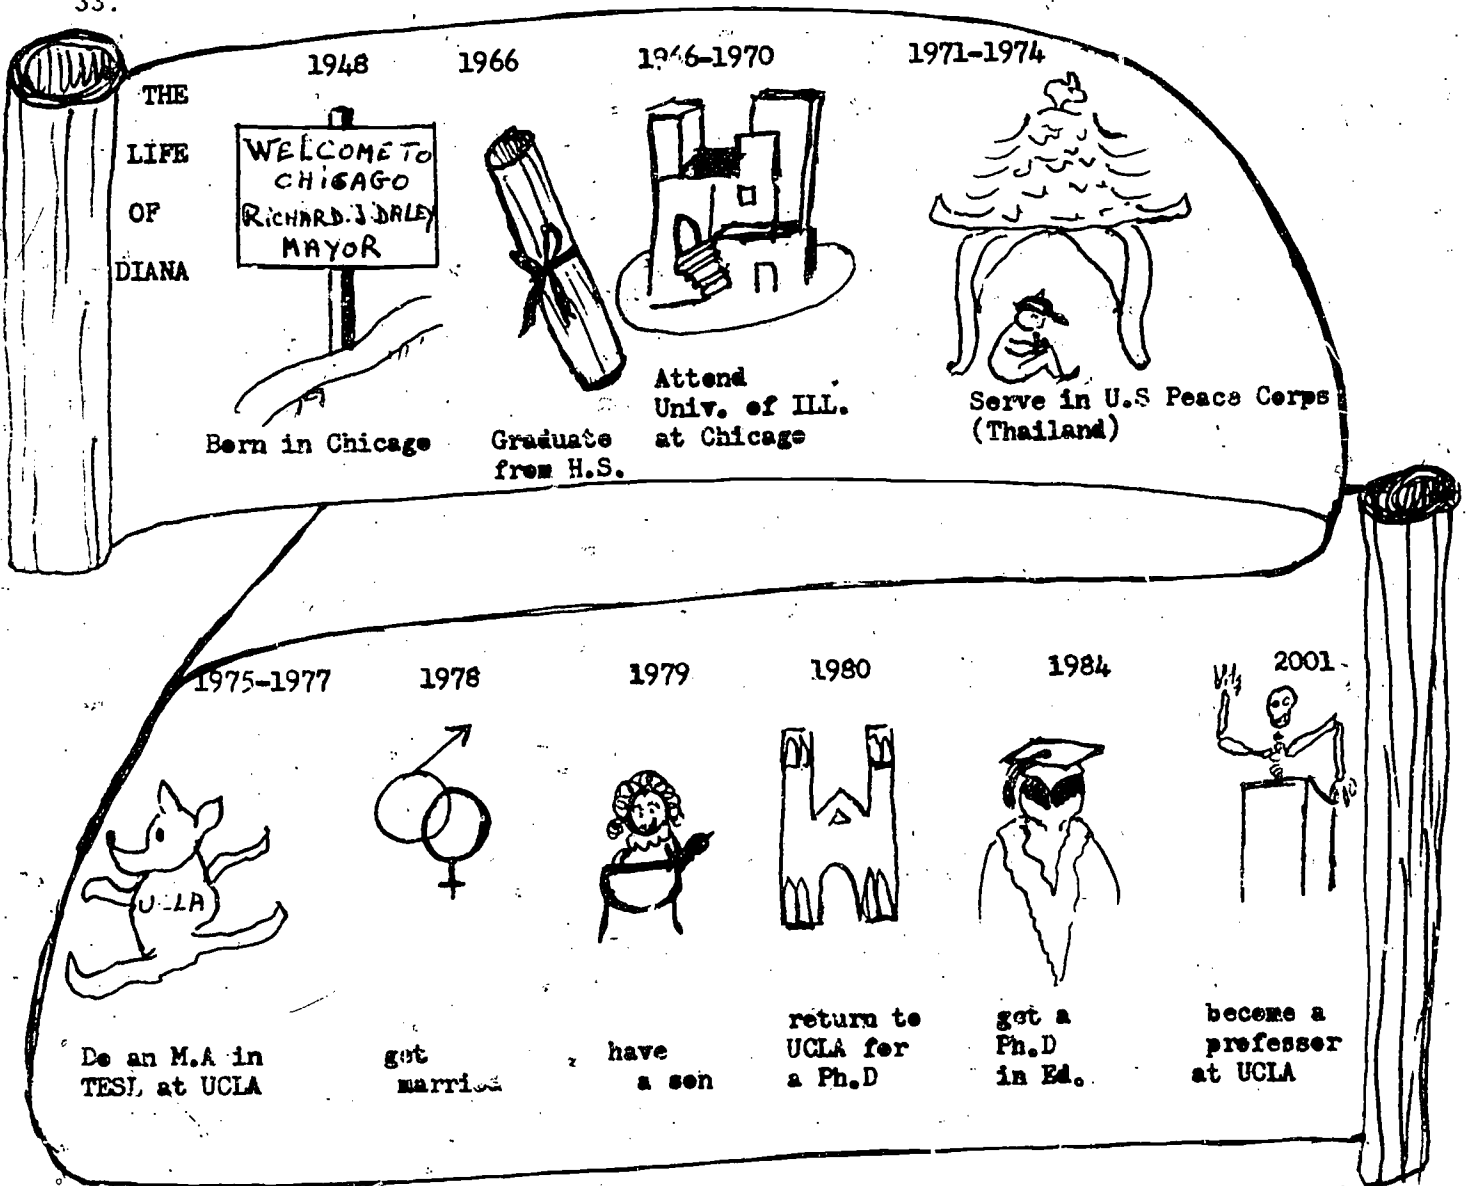 33.
THE
LIFE
OF
DIANA
1948
WELCOME TO
CHICAGO
RICHARD.J.DALEY
MAYOR
Born in Chicago
1966
Graduate
from H.S.
1966-1970
Attend
Univ. of ILL.
at Chicago
1971-1974
Serve in U.S Peace Corps
(Thailand)
1975-1977
UCLA
Do an M.A in
TESL at UCLA
1978
get
married
1979
have
a son
1980
return to
UCLA for
a Ph.D
1984
get a
Ph.D
in Ed.
2001
become a
professor
at UCLA